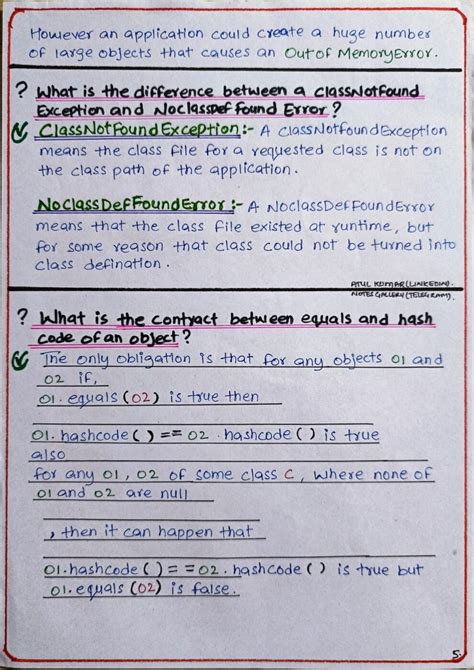 However an application could create a huge number
of large objects that causes an Out of MemoryError.
? What is the difference between a ClassNotFound
Exception and NoClassDef Found Error?
ClassNotFoundException:- A ClassNotFoundException
means the class file for a requested class is not on
the class path of the application.
NoClassDefFoundError:- A NoClassDefFoundError
means that the class file existed at runtime, but
for some reason that class could not be turned into
class defination.
ATUL KUMAR (LINKEDIN).
NOTES GALLERY (TELEGRAM).
? What is the contract between equals and hash
code of an object?
The only obligation is that for any objects O1 and
O2 if,
O1.equals (O2) is true then
O1.hashcode ( ) == O2.hashcode ( ) is true
also
for any O1, O2 of some class C, where none of
O1 and O2 are null
, then it can happen that
O1.hashcode ( ) == O2.hashcode ( ) is true but
O1.equals (O2) is false.
5.